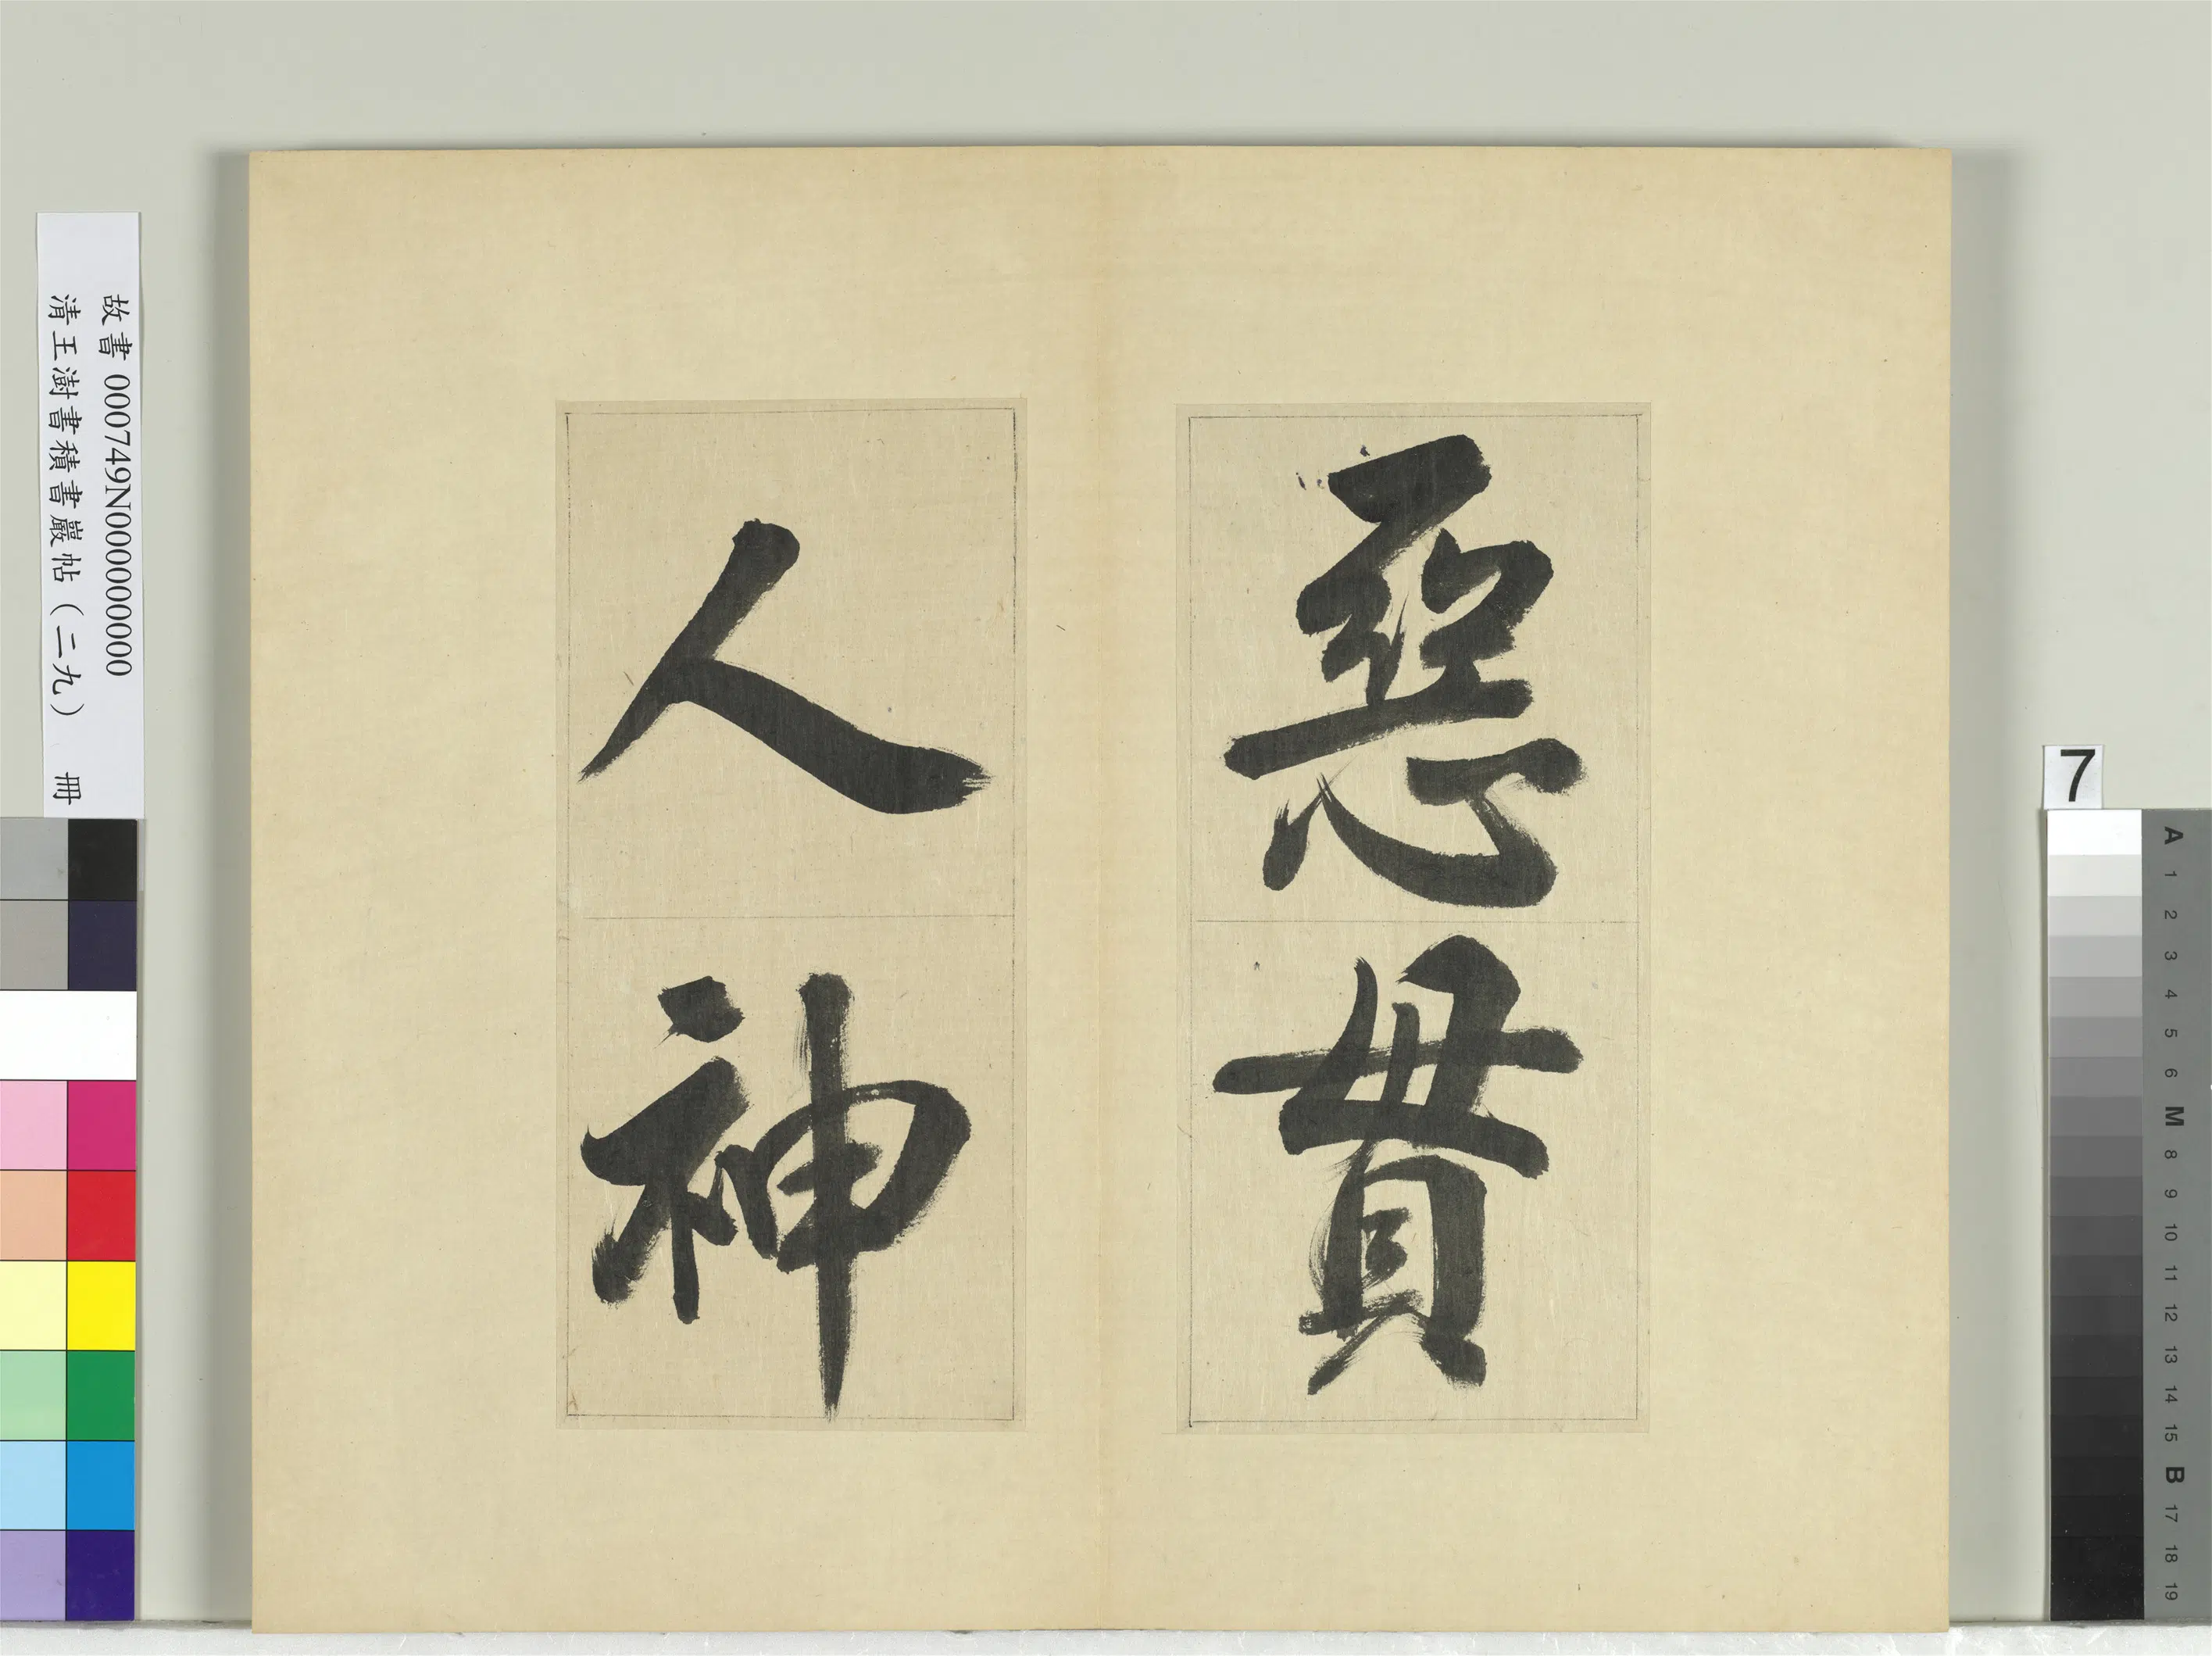 惡貫
人神
故書000749N000000000
清王澍書積書巖帖（二九） 冊
7
A
1
2
3
4
5
6
M
8
9
10
11
12
13
14
15
B
17
18
19